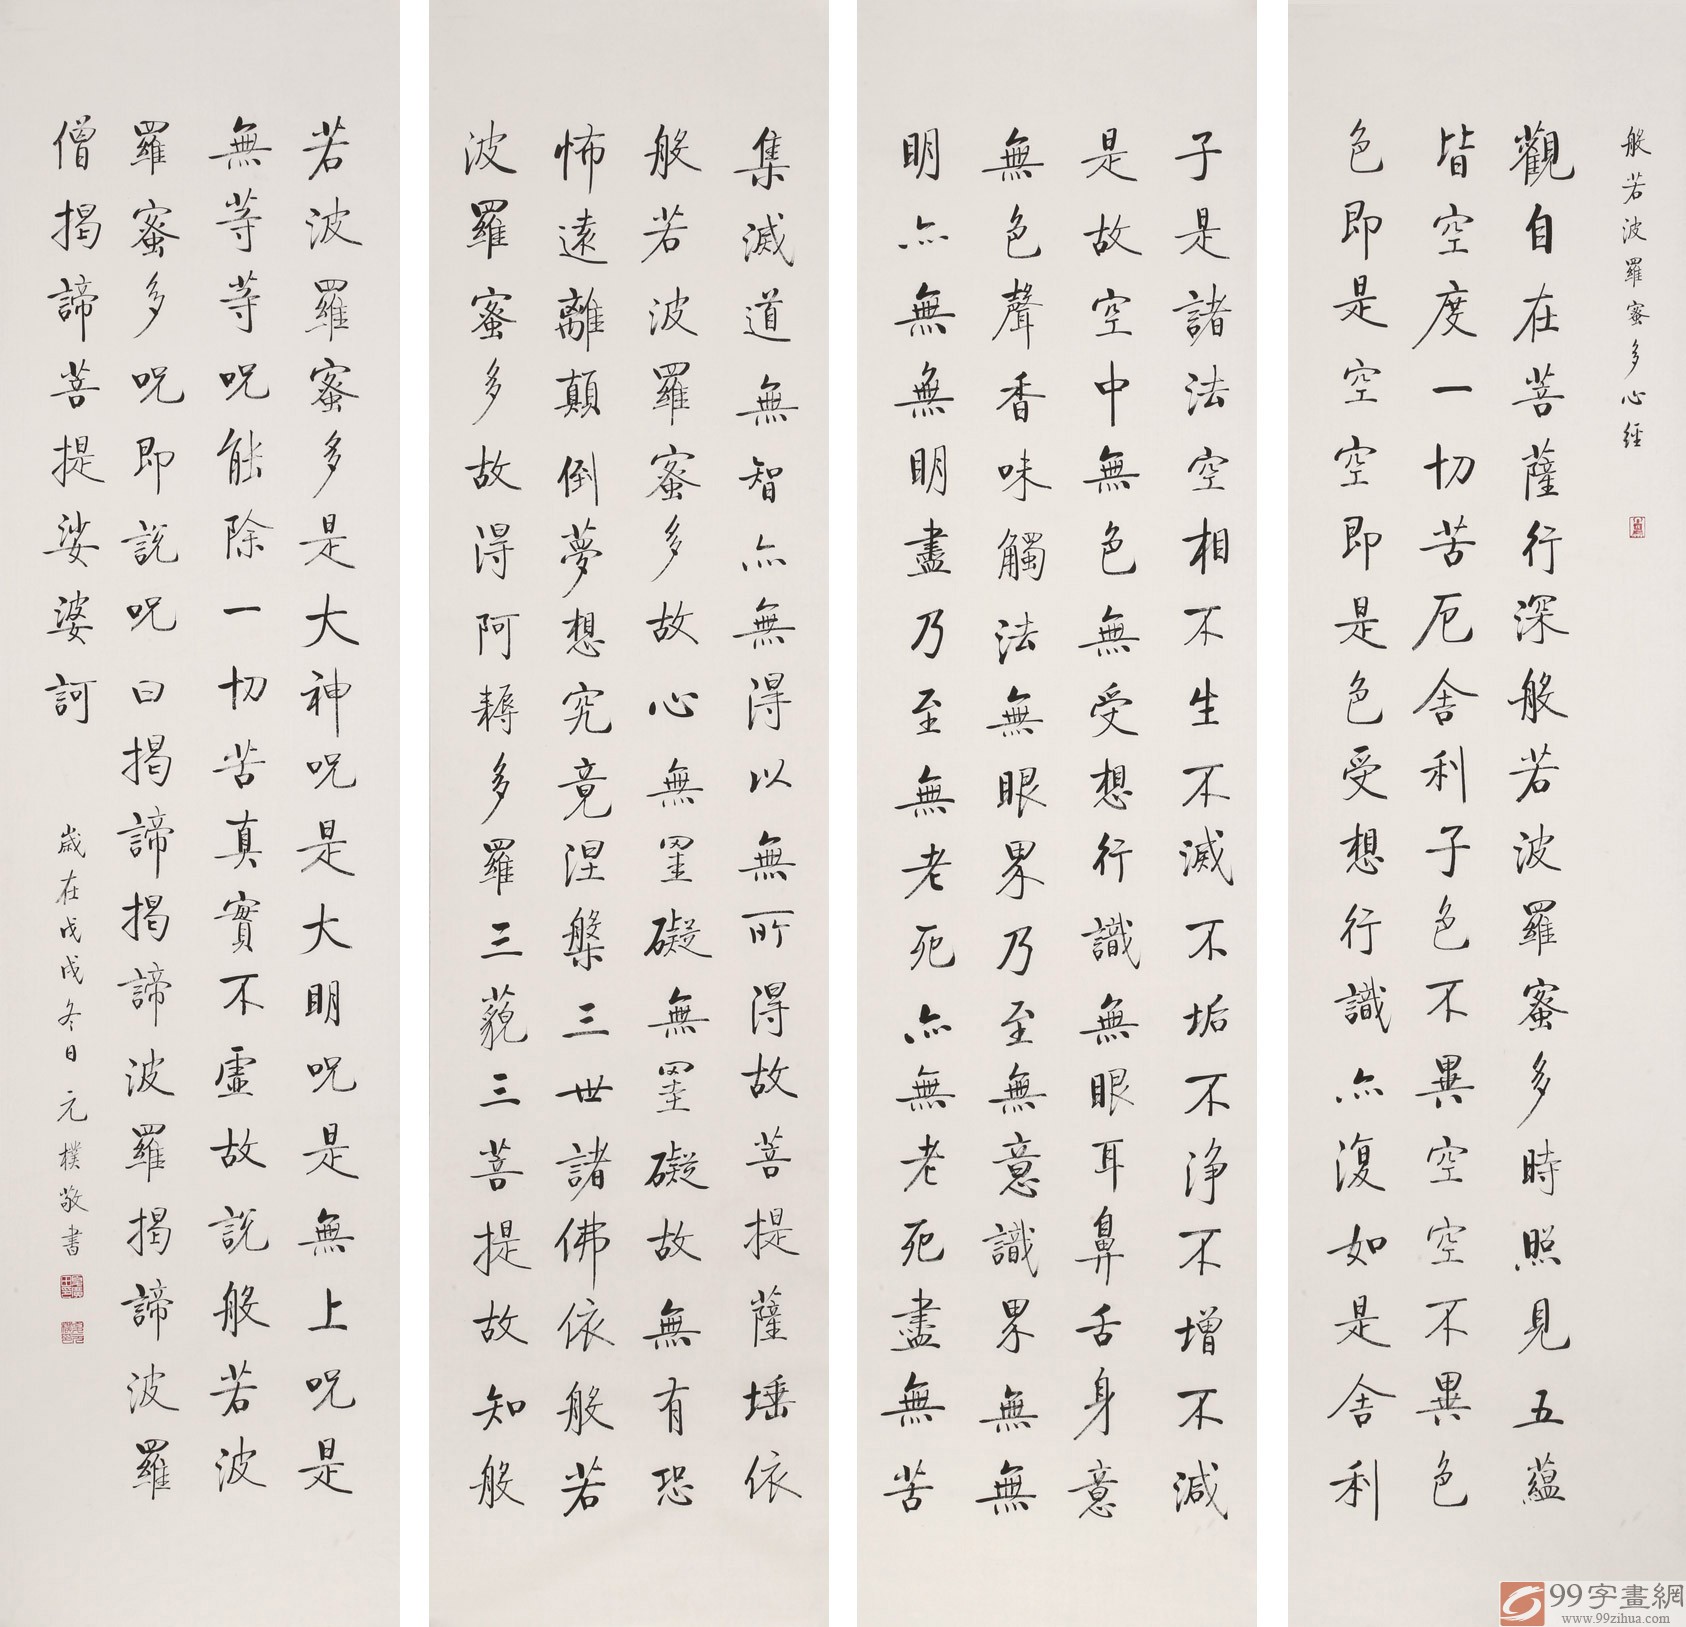 般若波羅蜜多心經
觀自在菩薩行深般若波羅蜜多時照見五蘊
皆空度一切苦厄舍利子色不異空空不異色
色即是空空即是色受想行識亦復如是舍利
子是諸法空相不生不滅不垢不淨不增不減
是故空中無色無受想行識無眼耳鼻舌身意
無色聲香味觸法無眼界乃至無意識界無無
明亦無無明盡乃至無老死亦無老死盡無苦
集滅道無智亦無得以無所得故菩提薩埵依
般若波羅蜜多故心無罣礙無罣礙故無有恐
怖遠離顛倒夢想究竟涅槃三世諸佛依般若
波羅蜜多故得阿耨多羅三藐三菩提故知般
若波羅蜜多是大神呪是大明呪是無上呪是
無等等呪能除一切苦真實不虛故說般若波
羅蜜多呪即說呪曰揭諦揭諦波羅揭諦波羅
僧揭諦菩提娑婆訶
歲在戊戌冬日元樸敬書
99字畫網
www.99zihua.com